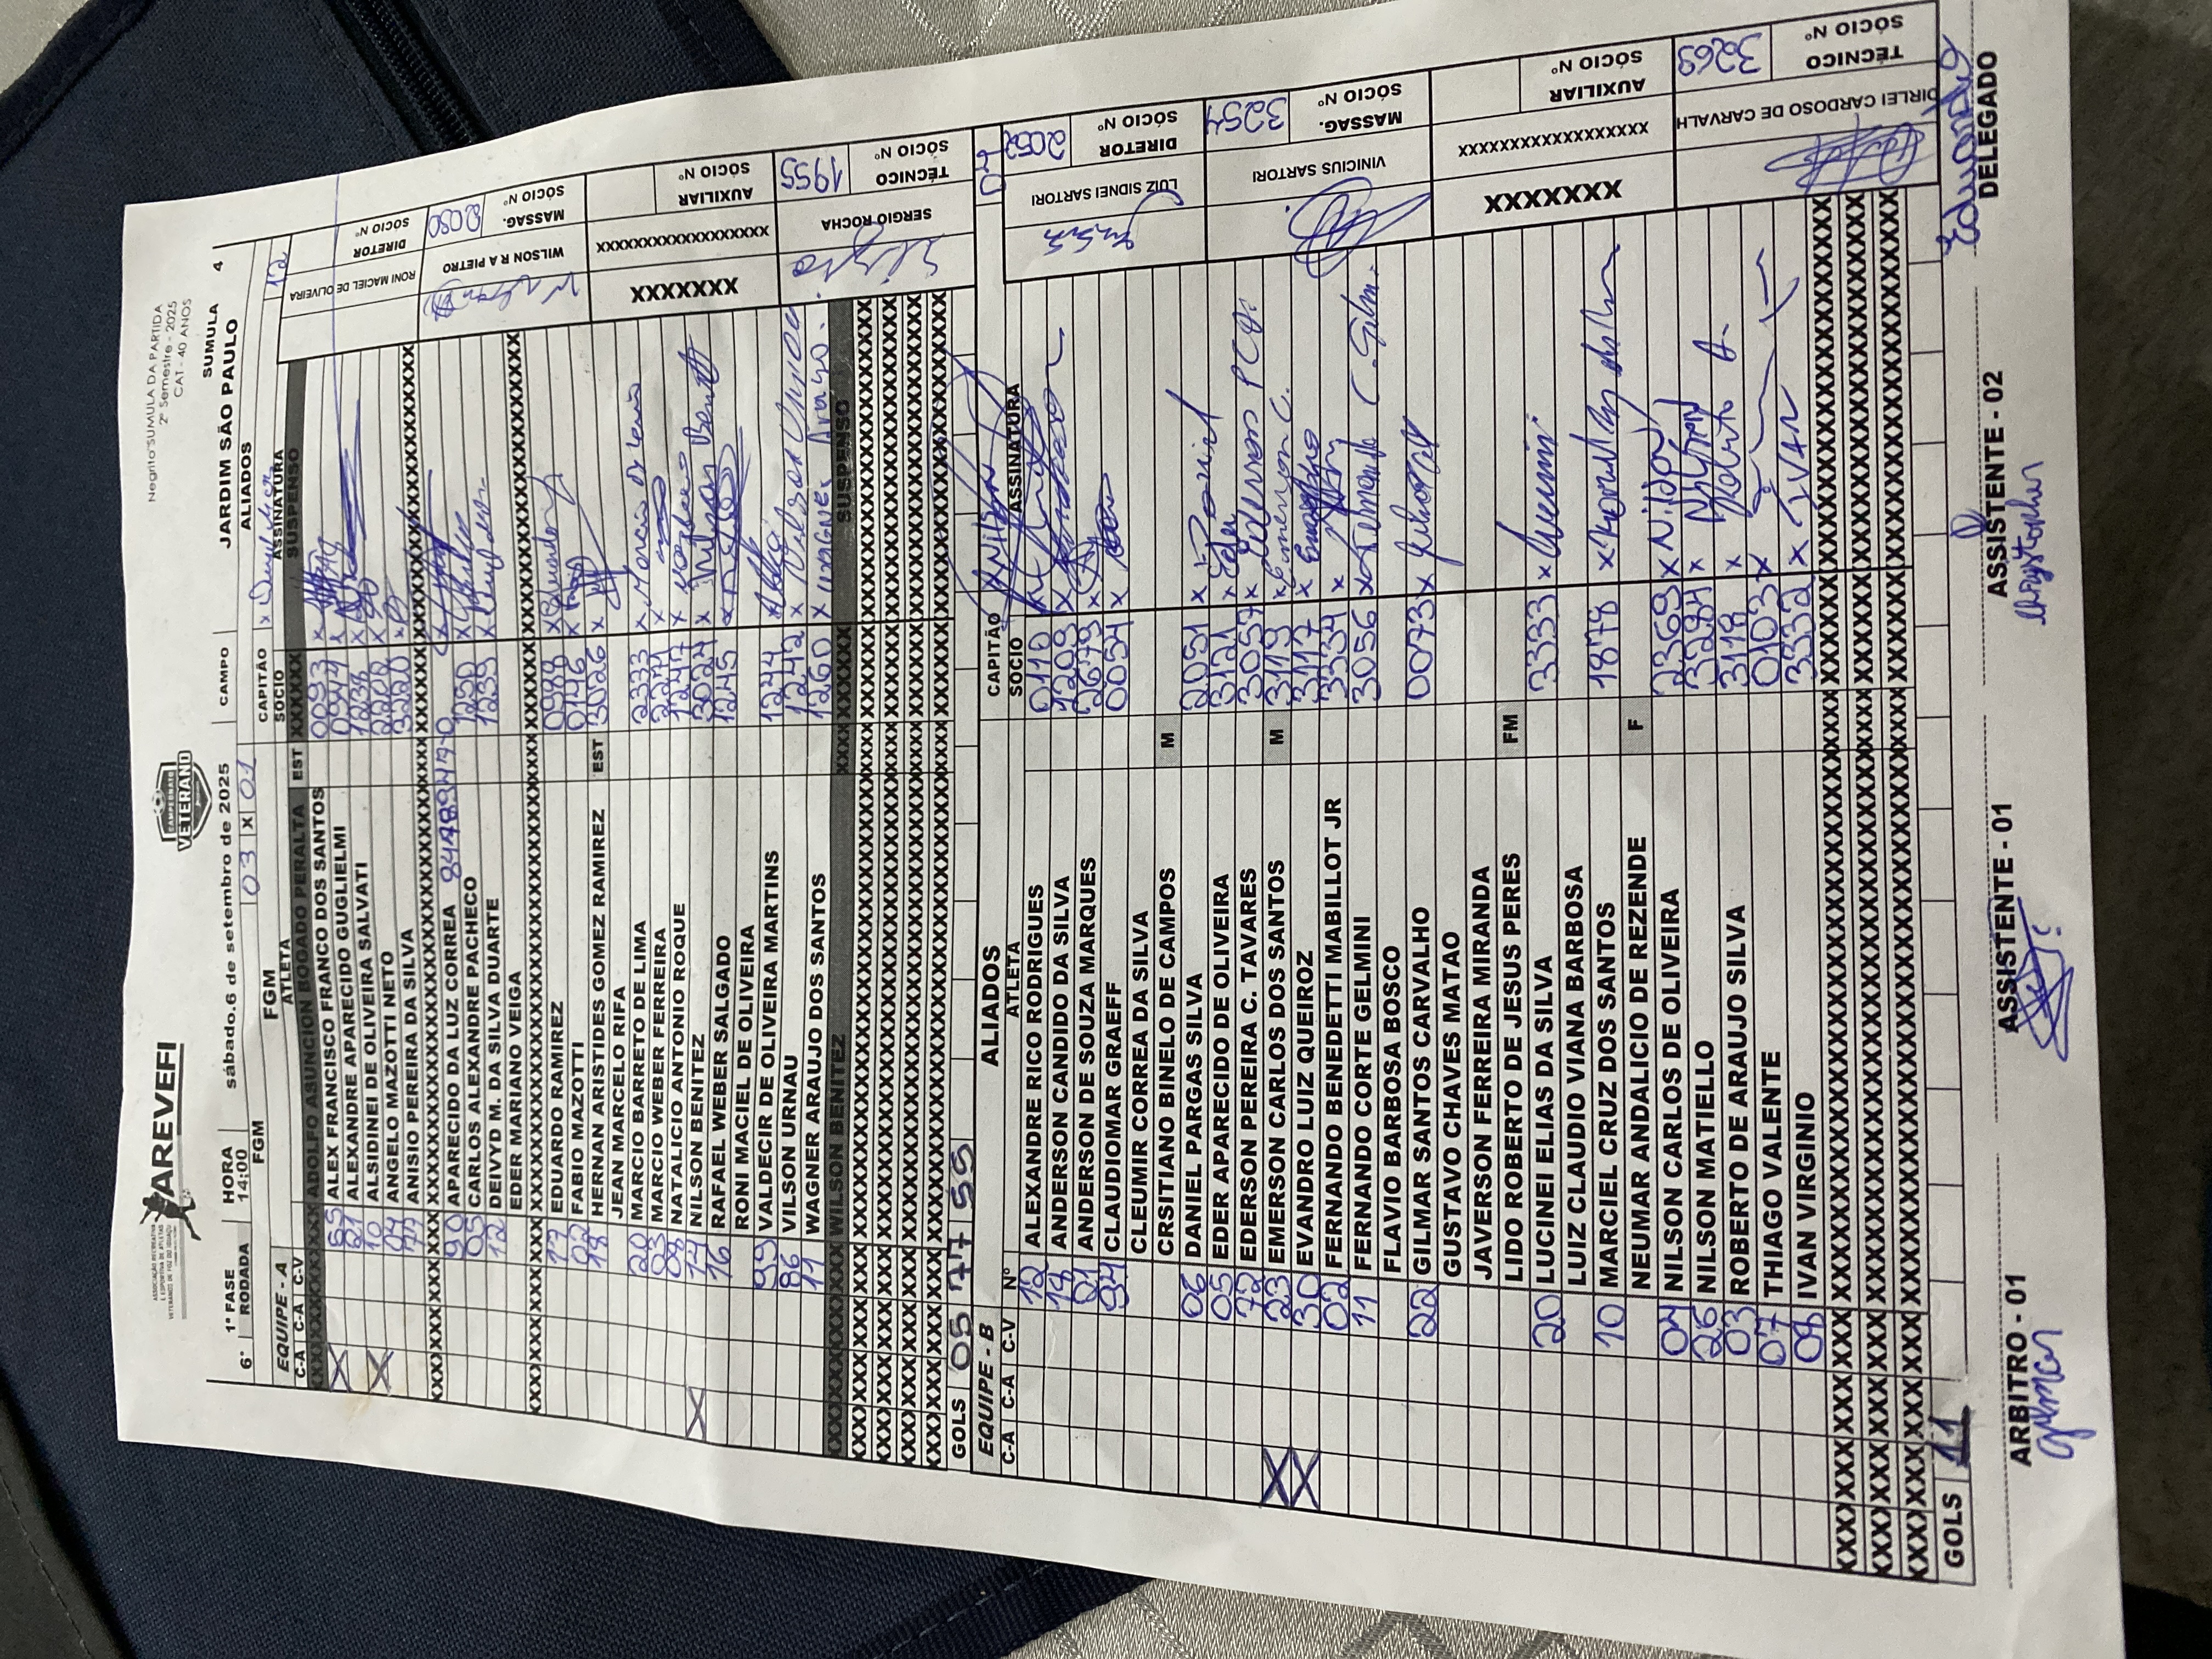 AREVEFI
ASSOCIAÇÃO RECREATIVA
E ESPORTIVA DE ATLETAS
VETERANOS DE FOZ DO IGUAÇU
CAMPEONATO
VETERANO
Negrito SUMULA DA PARTIDA
2º Semestre - 2025
CAT - 40 ANOS
1ª FASE HORA sábado, 6 de setembro de 2025 CAMPO JARDIM SÃO PAULO SUMULA
6ª RODADA 14:00 FGM 03 X 01 ALIADOS 4
EQUIPE - A FGM CAPITÃO
C-A C-A C-V ATLETA SOCIO ASSINATURA
ADOLFO ASUNCION BOGADO PERALTA EST XXXXX SUSPENSO
X 55 ALEX FRANCISCO FRANCO DOS SANTOS 0093
21 ALEXANDRE APARECIDO GUGLIELMI 0944
X 10 ALSIDINEI DE OLIVEIRA SALVATI 1238
ANGELO MAZOTTI NETO 2208
77 ANISIO PEREIRA DA SILVA 3220
90 APARECIDO DA LUZ CORREA
05 CARLOS ALEXANDRE PACHECO 1250
12 DEIVYD M. DA SILVA DUARTE 1239
EDER MARIANO VEIGA
17 EDUARDO RAMIREZ 0988
02 FABIO MAZOTTI 0146
18 HERNAN ARISTIDES GOMEZ RAMIREZ EST 3026
JEAN MARCELO RIFA
20 MARCIO BARRETO DE LIMA 2333
03 MARCIO WEBER FERREIRA 2247
08 NATALICIO ANTONIO ROQUE 1247
X 14 NILSON BENITEZ 3024
16 RAFAEL WEBER SALGADO 1245
RONI MACIEL DE OLIVEIRA
99 VALDECIR DE OLIVEIRA MARTINS 1244
86 VILSON URNAU 1242
11 WAGNER ARAUJO DOS SANTOS 1260 WAGNER Araujo.
WILSON BENITEZ SUSPENSO
GOLS 05 77 55
RONI MACIEL DE OLIVEIRA DIRETOR SÓCIO Nº
WILSON R A PIETRO MASSAG. SÓCIO Nº 2080
XXXXXXX XXXXXXXXXXXXXXXXXX AUXILIAR SÓCIO Nº
SERGIO ROCHA TÉCNICO SÓCIO Nº 1955
EQUIPE - B ALIADOS CAPITÃO
C-A C-A C-V Nº ATLETA SOCIO ASSINATURA
12 ALEXANDRE RICO RODRIGUES 0110
14 ANDERSON CANDIDO DA SILVA 1209
21 ANDERSON DE SOUZA MARQUES 2679
94 CLAUDIOMAR GRAEFF 0054
CLEUMIR CORREA DA SILVA
CRSITIANO BINELO DE CAMPOS M
06 DANIEL PARGAS SILVA 2051 Daniel
05 EDER APARECIDO DE OLIVEIRA 3121 Eder
72 EDERSON PEREIRA C. TAVARES 3057 Ederson PCT
X 23 EMERSON CARLOS DOS SANTOS M 3119 Emerson C.
X 30 EVANDRO LUIZ QUEIROZ 3117
02 FERNANDO BENEDETTI MABILLOT JR 3334
11 FERNANDO CORTE GELMINI 3056 Fernando C. Gelmi.
FLAVIO BARBOSA BOSCO
22 GILMAR SANTOS CARVALHO 0073
GUSTAVO CHAVES MATAO
JAVERSON FERREIRA MIRANDA
LIDO ROBERTO DE JESUS PERES FM
20 LUCINEI ELIAS DA SILVA 3333
LUIZ CLAUDIO VIANA BARBOSA
10 MARCIEL CRUZ DOS SANTOS 1878
NEUMAR ANDALICIO DE REZENDE F
04 NILSON CARLOS DE OLIVEIRA 2369 Nilson
26 NILSON MATIELLO 3284 Nilson
03 ROBERTO DE ARAUJO SILVA 3118 Roberto A.
07 THIAGO VALENTE 0103
08 IVAN VIRGINIO 3332 IVAN
GOLS 11
LUIZ SIDNEI SARTORI DIRETOR SÓCIO Nº 2052
VINICIUS SARTORI MASSAG. SÓCIO Nº 3254
XXXXXXX XXXXXXXXXXXXXXXXXX AUXILIAR SÓCIO Nº
DIRLEI CARDOSO DE CARVALH TÉCNICO SÓCIO Nº 3269
ARBITRO - 01 ASSISTENTE - 01 ASSISTENTE - 02 DELEGADO
Gilmar Chrystopher Eduardo